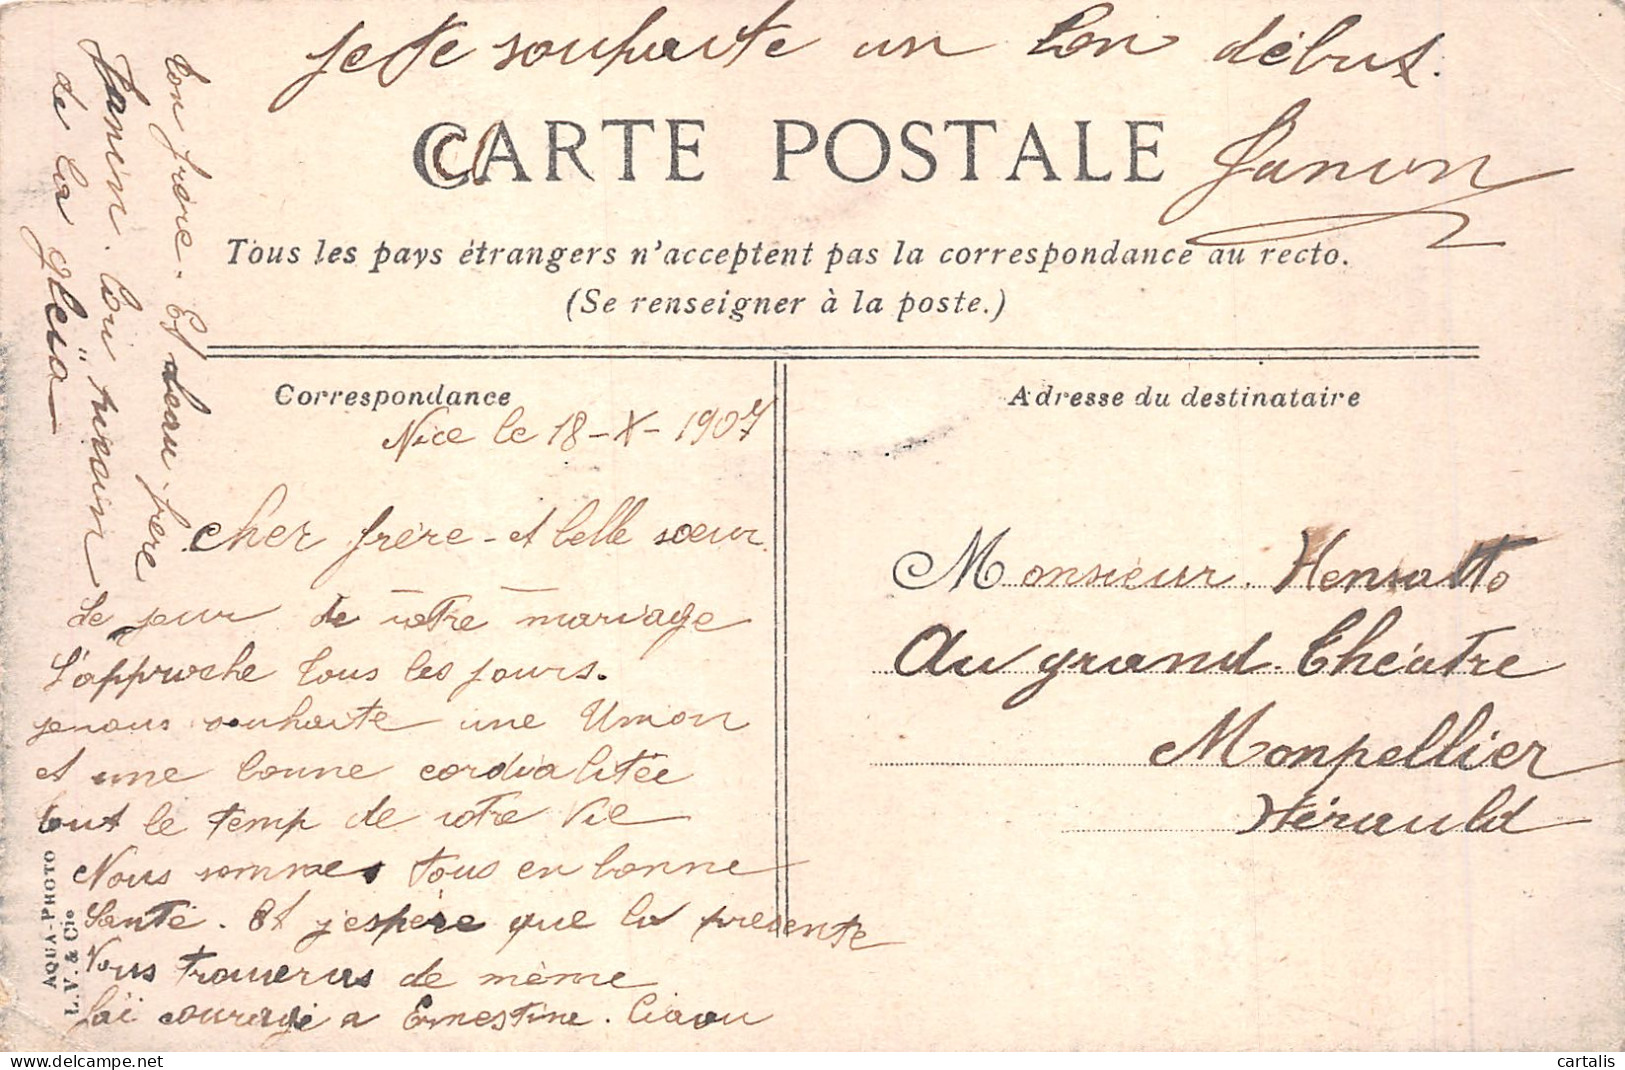 Je te souhaite un bon début.
CARTE POSTALE
Janin
Tous les pays étrangers n'acceptent pas la correspondance au recto.
(Se renseigner à la poste.)
Correspondance
Adresse du destinataire
Nice le 18-X-1907
cher frère - et belle sœur
Le jour de votre mariage
S'approche tous les jours.
je nous souhaite une Union
et une bonne cordialitée
tout le temp de votre vie
Nous sommes tous en bonne
Santé. Et j'espére que la presente
Vous trouveras de même
J'ai couragé a Ernestine. Ciaou
ton frère. Et beau-frère
Janin.
de la
Monsieur. Hensotto
Au grand. théatre
Monpellier
Hérauld
AQUA-PHOTO
L.V. & Cie
cartalis